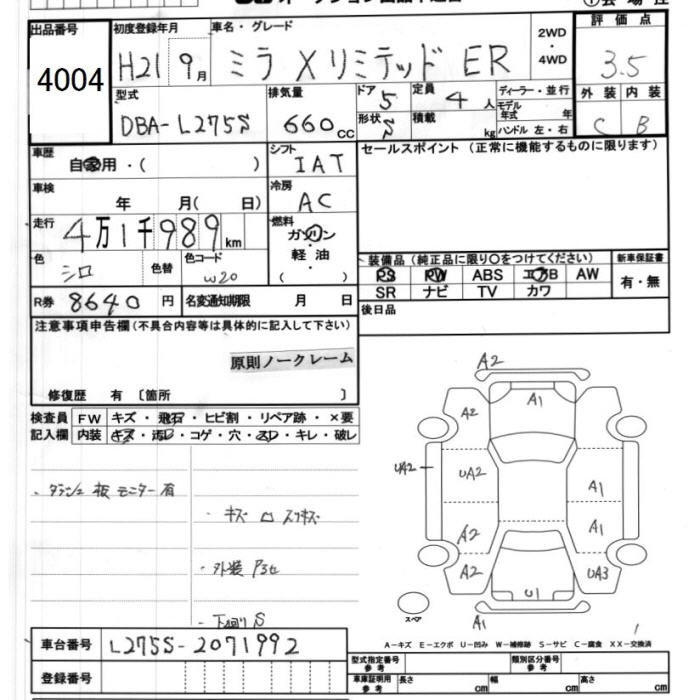 出品番号
4004
初度登録年月
H21 9月
車名・グレード
ミラ Xリミテッド ER
2WD
・
4WD
評価点
3.5
型式
DBA-L275S
排気量
660cc
ドア
5
定員
4人
ディーラー・並行
モデル
年式 年
形状
積載 kg
ハンドル 左・右
外装 内装
C B
車歴
自家用・( )
シフト
IAT
セールスポイント (正常に機能するものに限ります)
車検
年 月( 日)
冷房
AC
走行
4万1千989km
燃料
ガソリン
軽油
( )
色
シロ
色替
色コード
W20
装備品(純正品に限り〇をつけてください)
PS PW ABS エアB AW
SR ナビ TV カワ
新車保証書
有・無
R券 8640円
名変通知期限 月 日
後日品
注意事項申告欄(不具合内容等は具体的に記入して下さい)
原則ノークレーム
修復歴 有 〔箇所 〕
検査員
記入欄
FW キズ・飛石・ヒビ割・リペア跡・×要
内装 キズ・汚レ・コゲ・穴・スレ・キレ・破レ
・ダッシュ板 モニター有
・キズ ロ スリキズ
・外装
・下廻り S
A2
A1
A2
UA2
UA2
A1
A2
A1
A2
UA3
U1
A1
スペア
A-キズ E-エクボ U-凹み W-補修跡 S-サビ C-腐食 XX-交換済
車台番号
L275S-2071992
登録番号
型式指定番号
参考
類別区分番号
参考
車庫証明用
参考
長さ cm
幅 cm
高さ cm